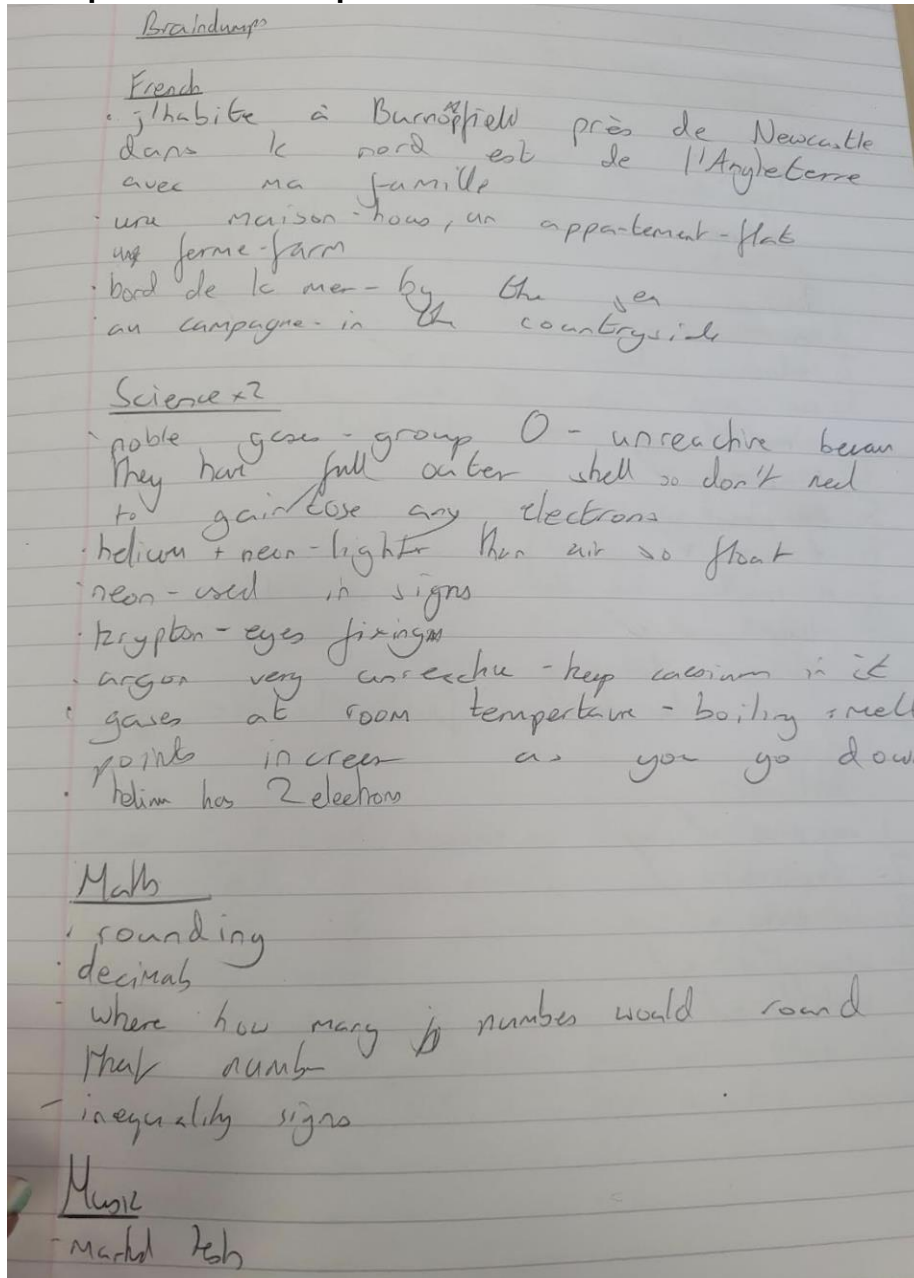 Braindumps
French
· j'habite à Burnopfield près de Newcastle
dans le nord est de l'Angleterre
avec ma famille
· une maison - hous, un appartement - flat
une ferme - farm
· bord de le mer - by the sea
· au campagne - in the countryside
Science x2
· noble gases - group 0 - unreactive becau
they have full outer shell so don't need
to gain/lose any electrons
· helium + neon - lighter than air so float
· neon - used in signs
· krypton - eyes fixing
· argon very unreactive - keep caesium in it
· gases at room tempertaure - boiling + melt
points increase as you go dow
· helium has 2 electrons
Maths
· rounding
· decimals
- where how many numbers would round
that number
- inequality signs
Music
- marked tests